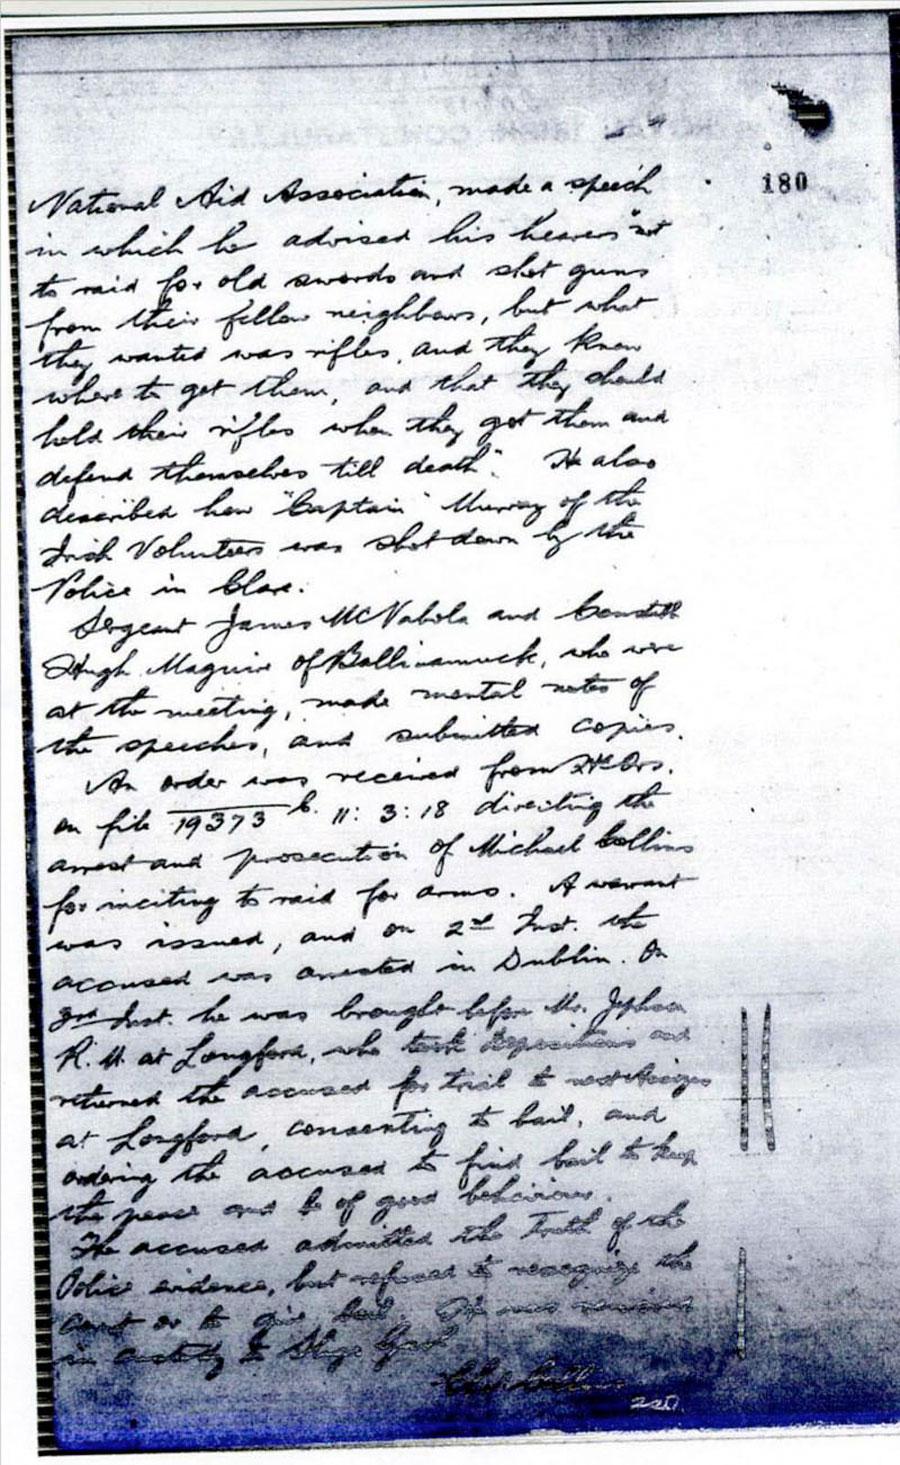 180
National Aid Association, made a speech
in which he advised his hearers "not
to raid for old swords and shot guns
from their fellow neighbours, but what
they wanted was rifles, and they knew
where to get them, and that they should
hold their rifles when they got them and
defend themselves till death". He also
described how "Captain" Murray of the
Irish Volunteers was shot down by the
Police in Clare.
Sergeant James McNabola and Constable
Hugh Maguire of Ballinamuck, who were
at the meeting, made mental notes of
the speeches, and submitted copies.
An order was received from Hd Qrs.
on file 19373 C. 11:3:18 directing the
arrest and prosecution of Michael Collins
for inciting to raid for arms. A warrant
was issued, and on 2nd Inst. the
accused was arrested in Dublin. On
3rd Inst. he was brought before Mr. Jephson
R.M. at Longford, who took depositions and
returned the accused for trial to next Assizes
at Longford, consenting to bail, and
ordering the accused to find bail to keep
the peace and be of good behaviour.
The accused admitted the truth of the
Police evidence, but refused to recognize the
court or to give bail. He was
in custody to Sligo Gaol
220